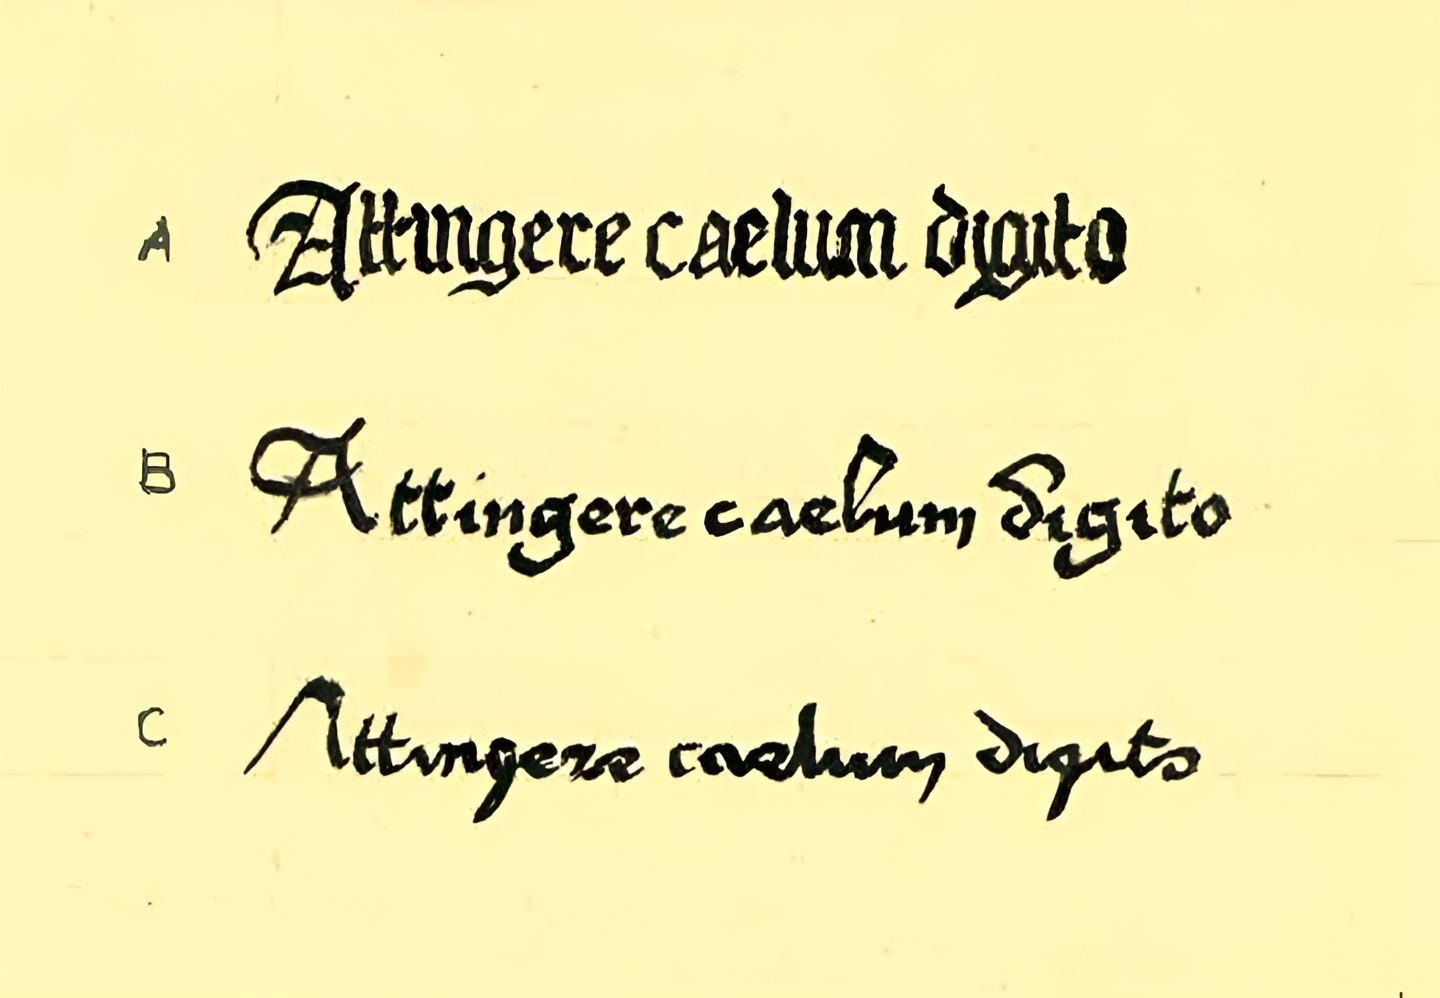 A Attingere caelum digito
B Attingere caelum digito
C Attingere caelum digito